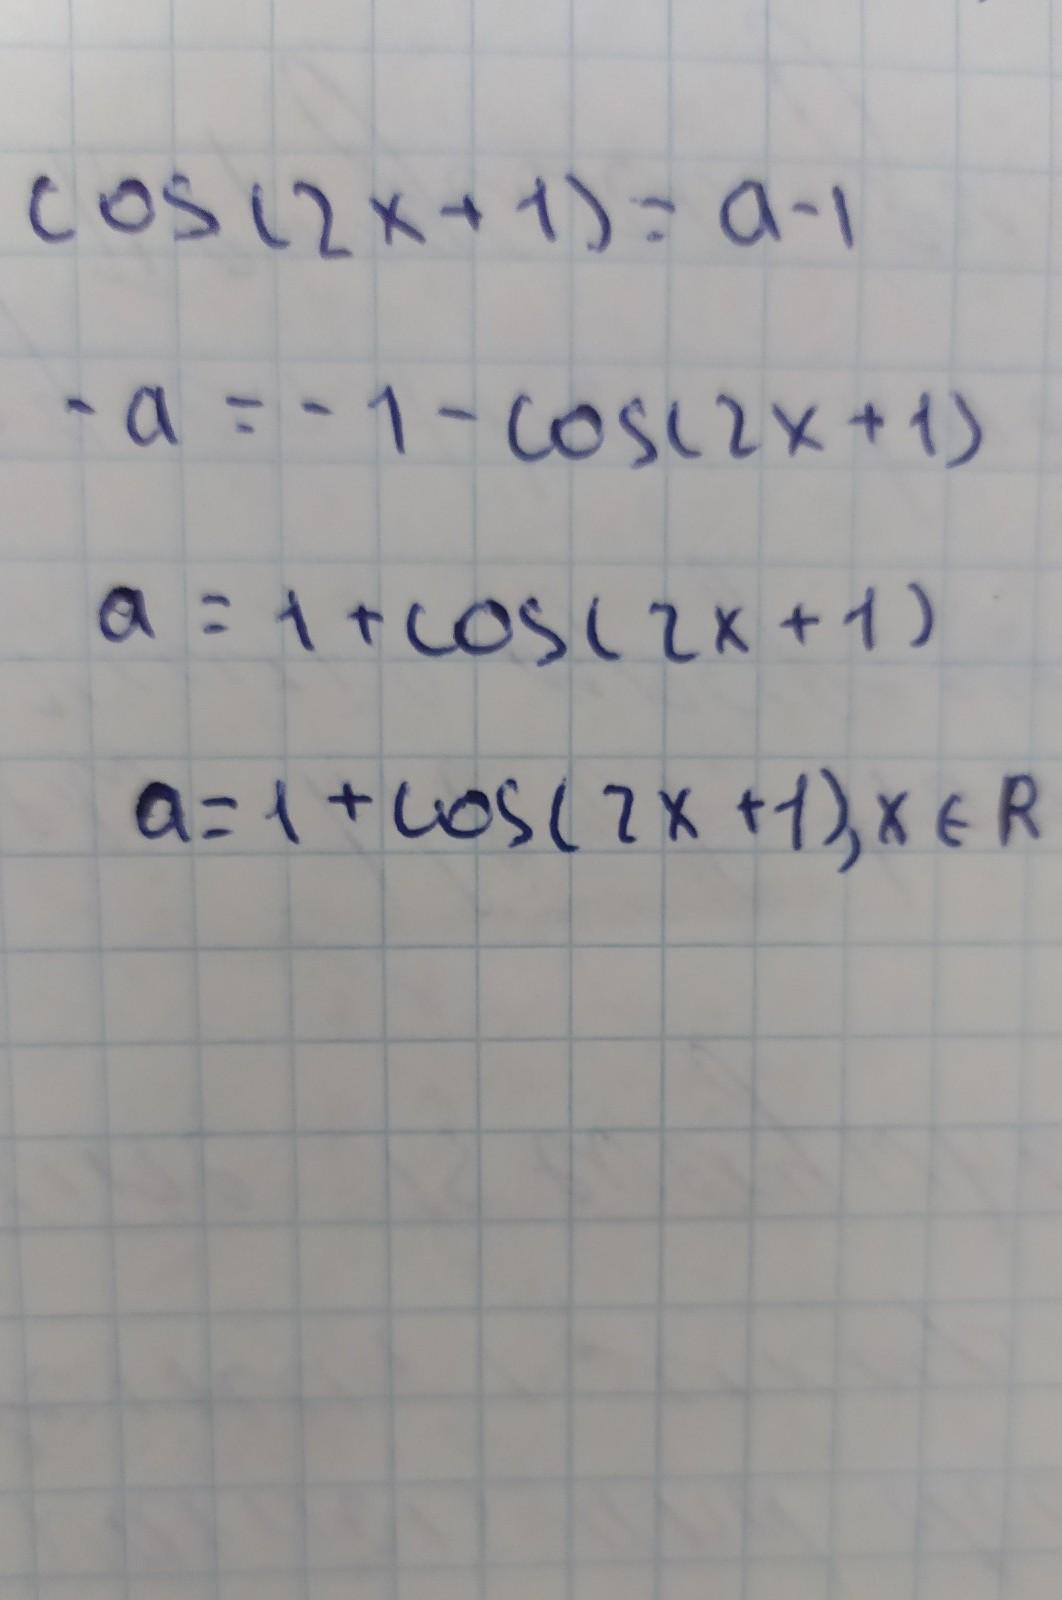 cos(2x+1)=a-1
-a=-1-cos(2x+1)
a=1+cos(2x+1)
a=1+cos(2x+1),x∈R